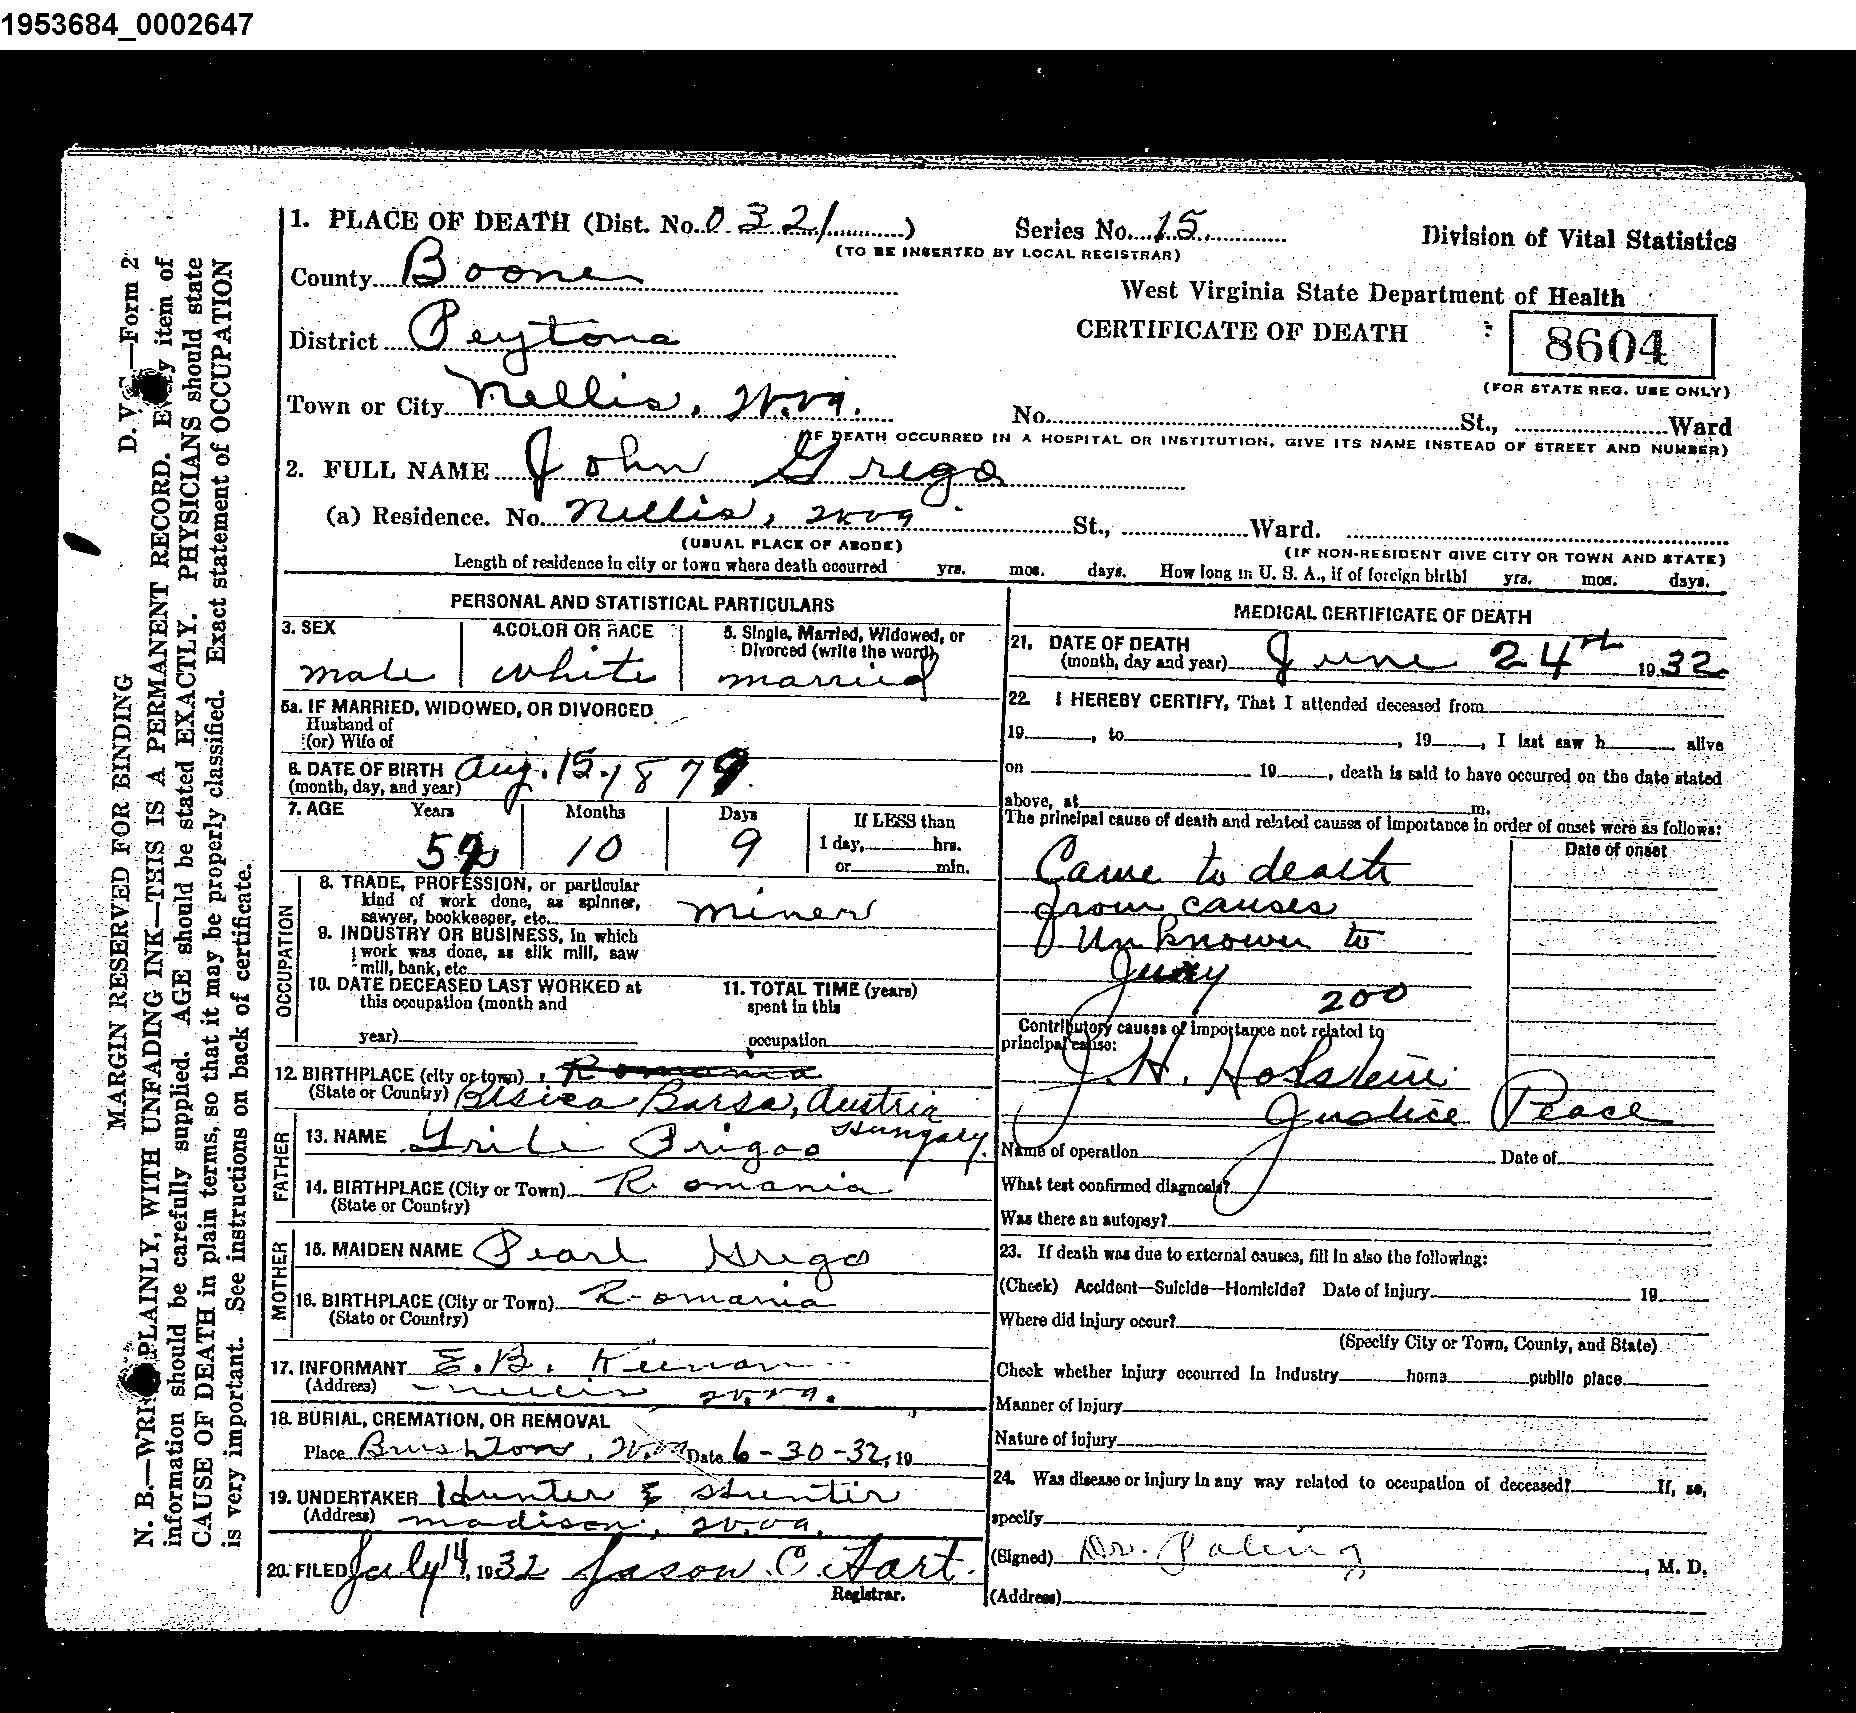 1953684_0002647
1. PLACE OF DEATH (Dist. No. 0321)
Series No. 15.
Division of Vital Statistics
(TO BE INSERTED BY LOCAL REGISTRAR)
County Boone
West Virginia State Department of Health
District Peytona
CERTIFICATE OF DEATH
8604
(FOR STATE REG. USE ONLY)
Town or City Nellis, W.Va.
No. St., Ward
(IF DEATH OCCURRED IN A HOSPITAL OR INSTITUTION, GIVE ITS NAME INSTEAD OF STREET AND NUMBER)
2. FULL NAME John Grego
(a) Residence. No. Nellis, W.Va. St., Ward.
(USUAL PLACE OF ABODE) (IF NON-RESIDENT GIVE CITY OR TOWN AND STATE)
Length of residence in city or town where death occurred yrs. mos. days. How long in U. S. A., if of foreign birth? yrs. mos. days.
PERSONAL AND STATISTICAL PARTICULARS
3. SEX
male
4. COLOR OR RACE
white
5. Single, Married, Widowed, or
Divorced (write the word)
married
5a. IF MARRIED, WIDOWED, OR DIVORCED
Husband of
(or) Wife of
6. DATE OF BIRTH Aug. 15, 1879.
(month, day, and year)
7. AGE Years Months Days If LESS than
10 9 1 day, hrs.
or min.
OCCUPATION
8. TRADE, PROFESSION, or particular
kind of work done, as spinner,
sawyer, bookkeeper, etc. miner
9. INDUSTRY OR BUSINESS, in which
work was done, as silk mill, saw
mill, bank, etc.
10. DATE DECEASED LAST WORKED at
this occupation (month and
year)
11. TOTAL TIME (years)
spent in this
occupation
12. BIRTHPLACE (city or town) Romania
(State or Country) Barsa, Austria
Hungary.
FATHER
13. NAME
14. BIRTHPLACE (City or Town) Romania
(State or Country)
MOTHER
15. MAIDEN NAME Pearl Grego
16. BIRTHPLACE (City or Town) Romania
(State or Country)
17. INFORMANT E.B. Keenan
(Address) Nellis W.Va.
18. BURIAL, CREMATION, OR REMOVAL
Place Brushton, W.Va Date 6-30-32, 19
19. UNDERTAKER Hunter & Hunter
(Address) Madison, W.Va.
20. FILED July 14, 1932 Jason C. Hart.
Registrar.
MEDICAL CERTIFICATE OF DEATH
21. DATE OF DEATH
(month, day and year) June 24th 1932
22. I HEREBY CERTIFY, That I attended deceased from
19 , to , 19 , I last saw h alive
on 19 , death is said to have occurred on the date stated
above, at m.
The principal cause of death and related causes of importance in order of onset were as follows:
Date of onset
Came to death
from causes
unknown to
Jury
200
Contributory causes of importance not related to
principal cause:
J. H. Holstein
Justice Peace
Name of operation Date of
What test confirmed diagnosis?
Was there an autopsy?
23. If death was due to external causes, fill in also the following:
(Check) Accident—Suicide—Homicide? Date of injury 19
Where did injury occur?
(Specify City or Town, County, and State)
Check whether injury occurred in industry home public place
Manner of injury
Nature of injury
24. Was disease or injury in any way related to occupation of deceased? If, so,
specify
(Signed) Dr. , M. D.
(Address)
D. V. S.—Form 2
MARGIN RESERVED FOR BINDING
N. B.—WRITE PLAINLY, WITH UNFADING INK—THIS IS A PERMANENT RECORD. Every item of
information should be carefully supplied. AGE should be stated EXACTLY. PHYSICIANS should state
CAUSE OF DEATH in plain terms, so that it may be properly classified. Exact statement of OCCUPATION
is very important. See instructions on back of certificate.